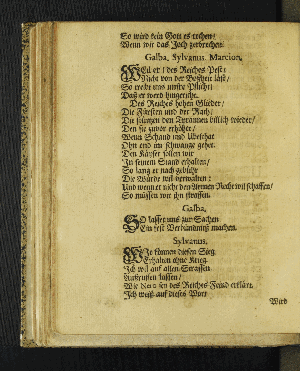 So wird kein Gott es rechen/
Wenn wir das Joch zerbrechen/
Galba, Sylvanus, Marcion,
Weil er / des Reiches Pest/
Nicht von der Bosheit läst/
So treibt uns unsre Pflicht/
Daß er werd hingericht.
Des Reiches hohen Glieder/
Die Fürsten und der Rath/
Die stürzen den Tyrannen billich wieder/
Den sie zuvor erhöhet/
Wenn Schand und Ubelthat
Ohn end im schwange gehet.
Den Käyser sollen wir
In seinem Stand erhalten/
So lang er nach gebühr
Die Würde wil verwalten:
Und wenn er nicht den Armen Recht wil schaffen/
So müssen wir ihn straffen.
Galba,
So lasset uns zur Sachen
Ein fest Verbündnüß machen.
Sylvanus,
Wir können diesen Sieg
Erhalten ohne Krieg
Ich wil auf allen Strassen
Außruffen lassen/
Wie Nero sey des Reiches Feind erklärt.
Ich weiß auf dieses Wort
Wird